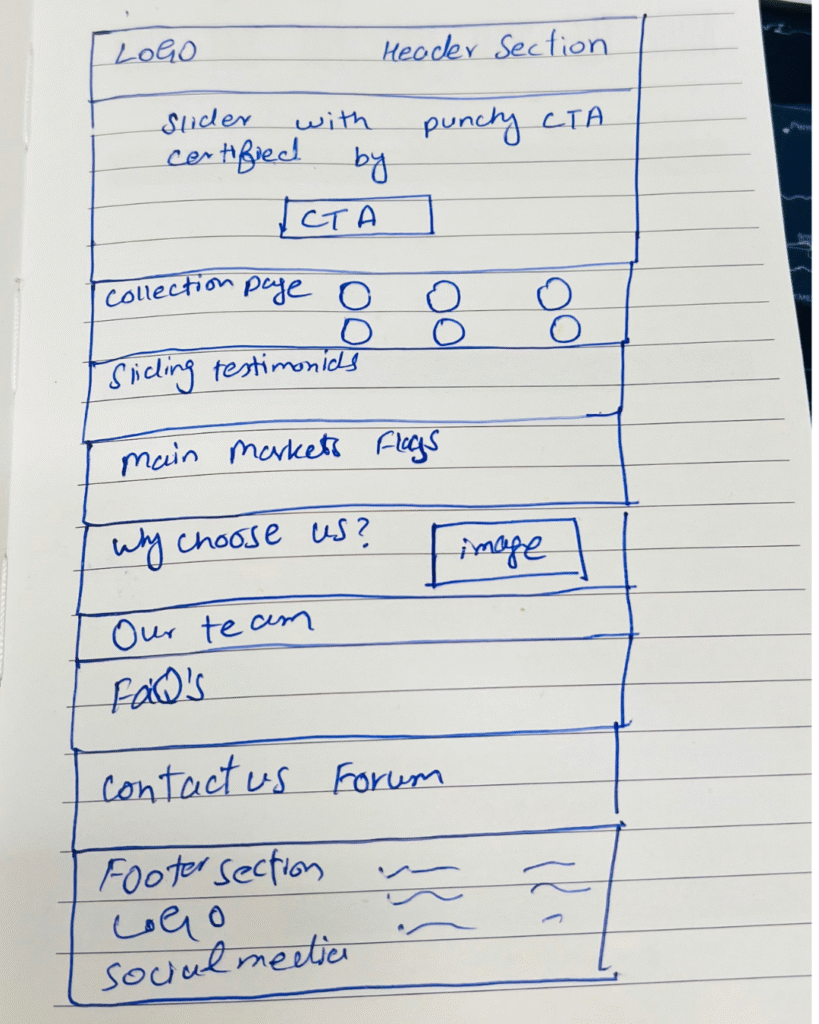 LOGO Header Section
Slider with punchy CTA
certified by
CTA
collection page
Sliding testimonials
main markets Flags
why choose us? image
Our team
FAQ's
contact us Forum
Footer section
LOGO
social media